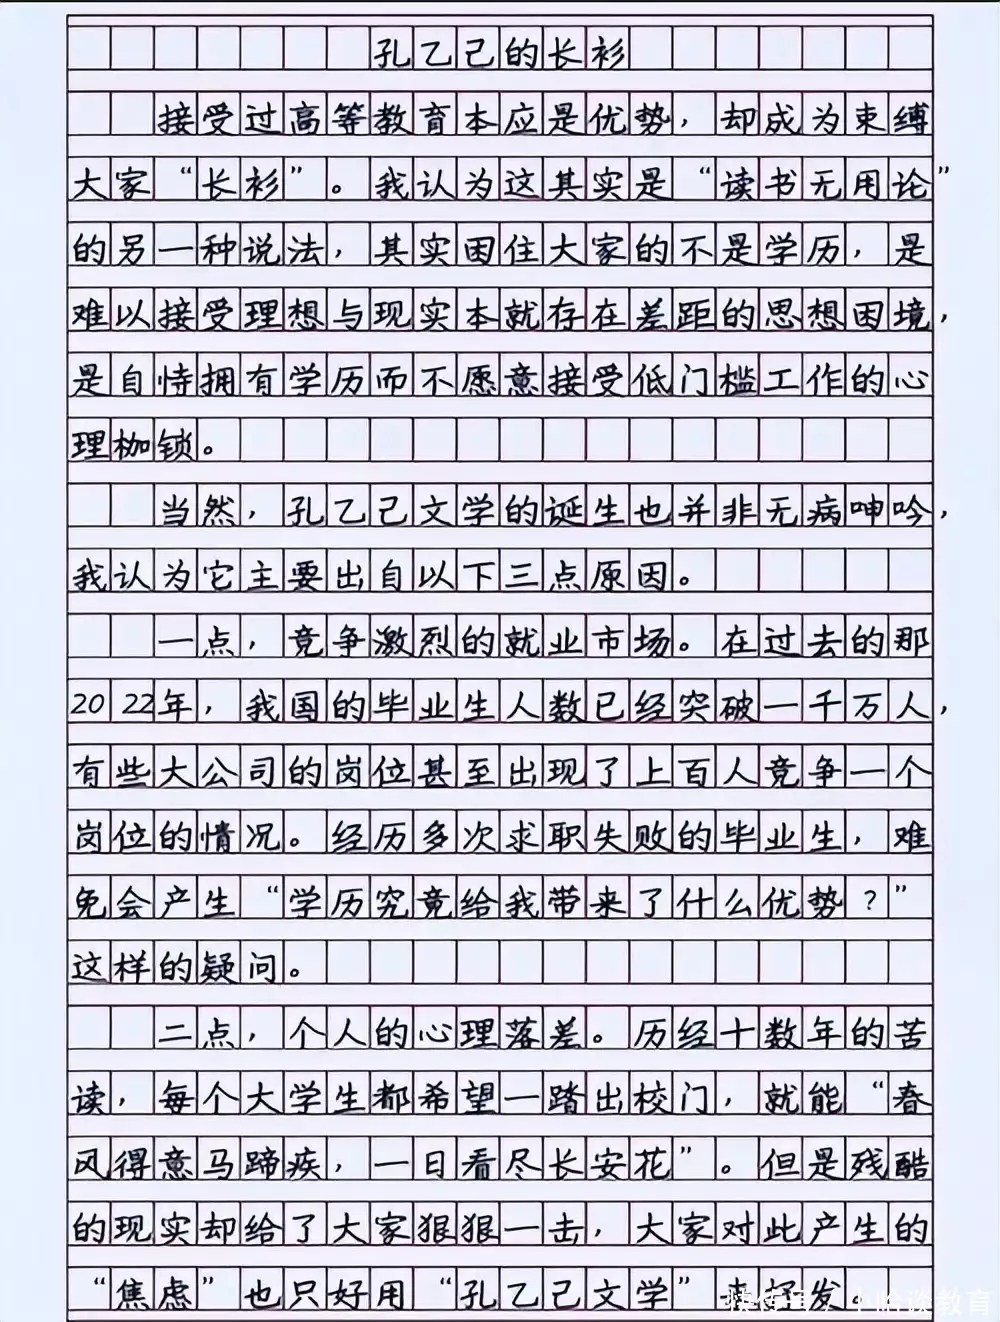 孔乙己的长衫
接受过高等教育本应是优势，却成为束缚
大家“长衫”。我认为这其实是“读书无用论”
的另一种说法，其实困住大家的不是学历，是
难以接受理想与现实本就存在差距的思想困境，
是自恃拥有学历而不愿意接受低门槛工作的心
理枷锁。
当然，孔乙己文学的诞生也并非无病呻吟，
我认为它主要出自以下三点原因。
一点，竞争激烈的就业市场。在过去的那
2022年，我国的毕业生人数已经突破一千万人，
有些大公司的岗位甚至出现了上百人竞争一个
岗位的情况。经历多次求职失败的毕业生，难
免会产生“学历究竟给我带来了什么优势？”
这样的疑问。
二点，个人的心理落差。历经十数年的苦
读，每个大学生都希望一踏出校门，就能“春
风得意马蹄疾，一日看尽长安花”。但是残酷
的现实却给了大家狠狠一击，大家对此产生的
“焦虑”也只好用“孔乙己文学”来抒发。
快传号/小哈谈教育